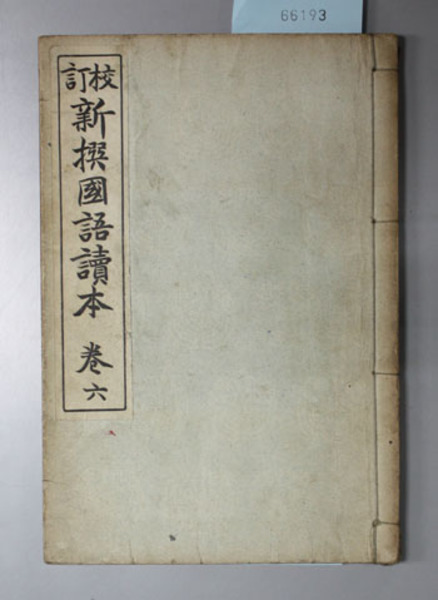 66193
校訂
新撰國語讀本 卷六